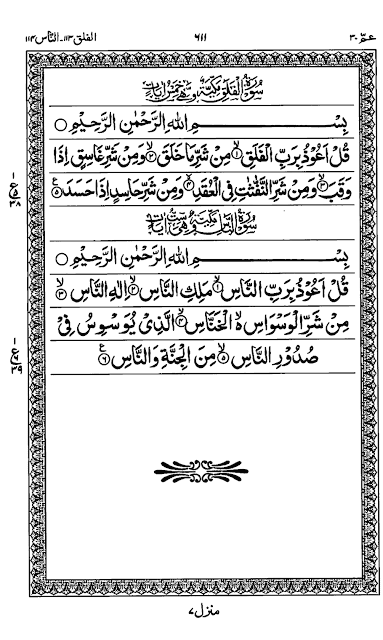 عمّ ۳۰
۶۱۱
الفلق ۱۱۳-الناس ۱۱۴
سُوْرَةُ الْفَلَقِ مَكِّيَّةٌ وَّهِيَ خَمْسُ اٰيَاتٍ
بِسْمِ اللهِ الرَّحْمٰنِ الرَّحِيْمِ ○
قُلْ اَعُوْذُ بِرَبِّ الْفَلَقِ ۙ۱ مِنْ شَرِّ مَا خَلَقَ ۙ۲ وَمِنْ شَرِّ غَاسِقٍ اِذَا
وَقَبَ ۙ۳ وَمِنْ شَرِّ النَّفّٰثٰتِ فِي الْعُقَدِ ۙ۴ وَمِنْ شَرِّ حَاسِدٍ اِذَا حَسَدَ ۵ع
سُوْرَةُ النَّاسِ مَكِّيَّةٌ وَّهِيَ سِتُّ اٰيَاتٍ
بِسْمِ اللهِ الرَّحْمٰنِ الرَّحِيْمِ ○
قُلْ اَعُوْذُ بِرَبِّ النَّاسِ ۙ۱ مَلِكِ النَّاسِ ۙ۲ اِلٰهِ النَّاسِ ۙ۳
مِنْ شَرِّ الْوَسْوَاسِ ۵ۙ الْخَنَّاسِ ۙ۴ الَّذِيْ يُوَسْوِسُ فِيْ
صُدُوْرِ النَّاسِ ۙ۵ مِنَ الْجِنَّةِ وَالنَّاسِ ۶ع
منزل ۷